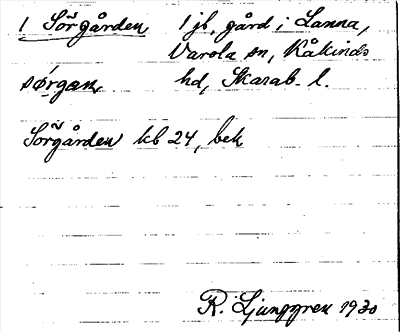 1 Sörgården 1 jb, gård i Lanna,
Varola sn, Kåkinds
sǿrgan hd, Skarab. l.
Sörgården kb 24, bek
R. Ljunggren 1930